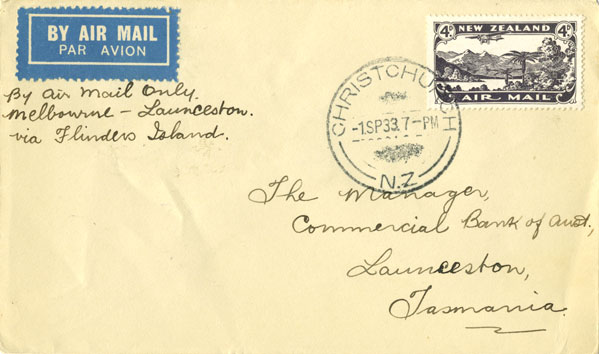 BY AIR MAIL
PAR AVION
4d NEW ZEALAND 4d
AIR MAIL
By Air Mail Only.
Melbourne – Launceston.
via Flinders Island.
CHRISTCHURCH
-1SP33.7-PM
N.Z
The Manager,
Commercial Bank of Aust.,
Launceston,
Tasmania.